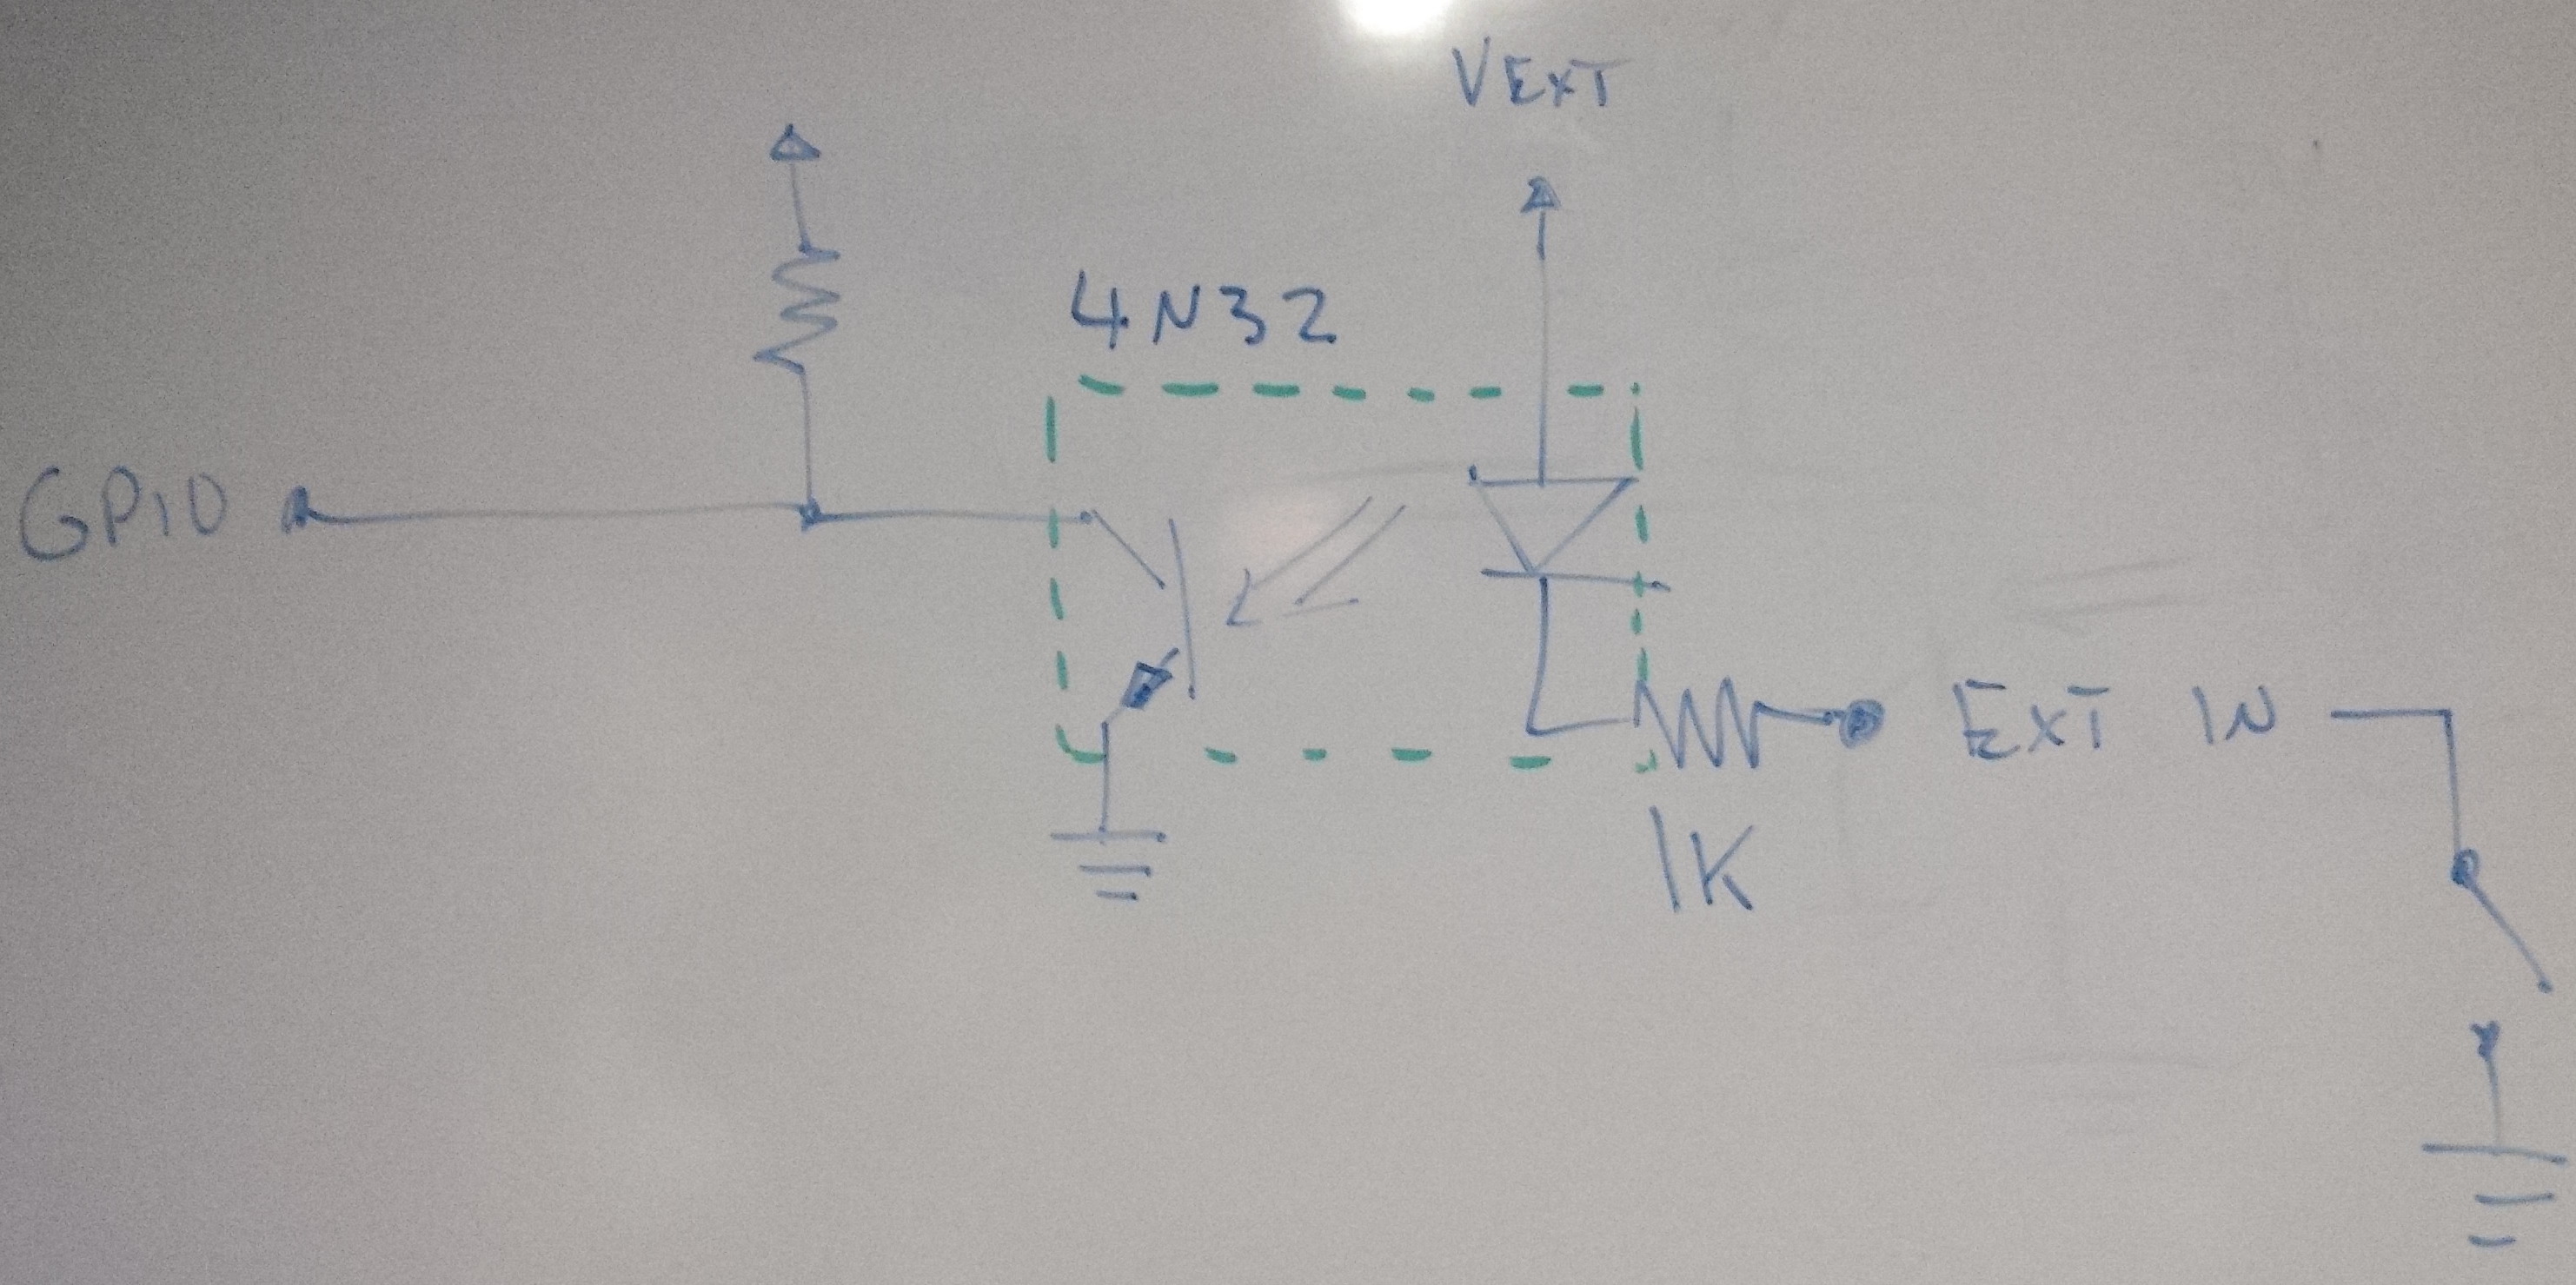 VEXT
4N32
GPIO
EXT IN
1K